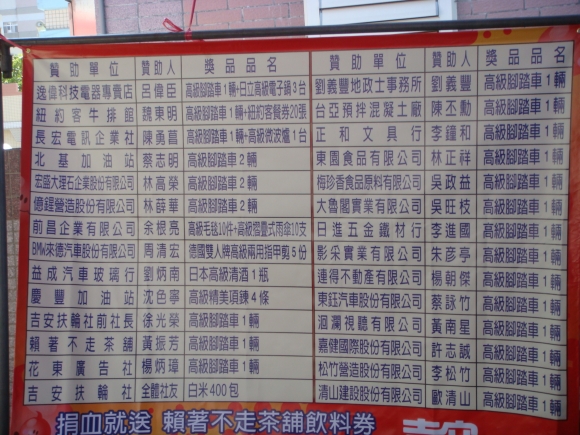 贊助單位 贊助人 獎品品名
逸偉科技電器專賣店 呂偉臣 高級腳踏車1輛+日立高級電子鍋3台
紐約客牛排館 魏東明 高級腳踏車1輛+紐約客餐券20張
長宏電訊企業社 陳勇菖 高級腳踏車1輛+高級微波爐1台
北基加油站 蔡志明 高級腳踏車2輛
宏盛大理石企業股份有限公司 林高榮 高級腳踏車2輛
億鍟營造股份有限公司 林薛華 高級腳踏車2輛
前昌企業有限公司 余根亮 高級毛毯10件+高級摺疊式雨傘10支
BMW來德汽車股份有限公司 周清宏 德國雙人牌高級兩用指甲剪5份
益成汽車玻璃行 劉炳南 日本高級清酒1瓶
慶豐加油站 沈色寧 高級精美項鍊4條
吉安扶輪社前社長 徐光榮 高級腳踏車1輛
賴著不走茶舖 黃振芳 高級腳踏車1輛
花東廣告社 楊炳璋 高級腳踏車1輛
吉安扶輪社 全體社友 白米400包
贊助單位 贊助人 獎品品名
劉義豐地政士事務所 劉義豐 高級腳踏車1輛
台亞預拌混凝土廠 陳丕勳 高級腳踏車1輛
正和文具行 李鐘和 高級腳踏車1輛
東園食品有限公司 林正祥 高級腳踏車1輛
梅珍香食品原料有限公司 吳政益 高級腳踏車1輛
大魯閣實業有限公司 吳旺枝 高級腳踏車1輛
日進五金鐵材行 李進國 高級腳踏車1輛
影采實業有限公司 朱彦亭 高級腳踏車1輛
連得不動產有限公司 楊朝傑 高級腳踏車1輛
東鈺汽車股份有限公司 蔡詠竹 高級腳踏車1輛
洄瀾視聽有限公司 黃南星 高級腳踏車1輛
嘉健國際股份有限公司 許志誠 高級腳踏車1輛
松竹營造股份有限公司 李松竹 高級腳踏車1輛
清山建設股份有限公司 歐清山 高級腳踏車1輛
捐血就送 賴著不走茶舖飲料券